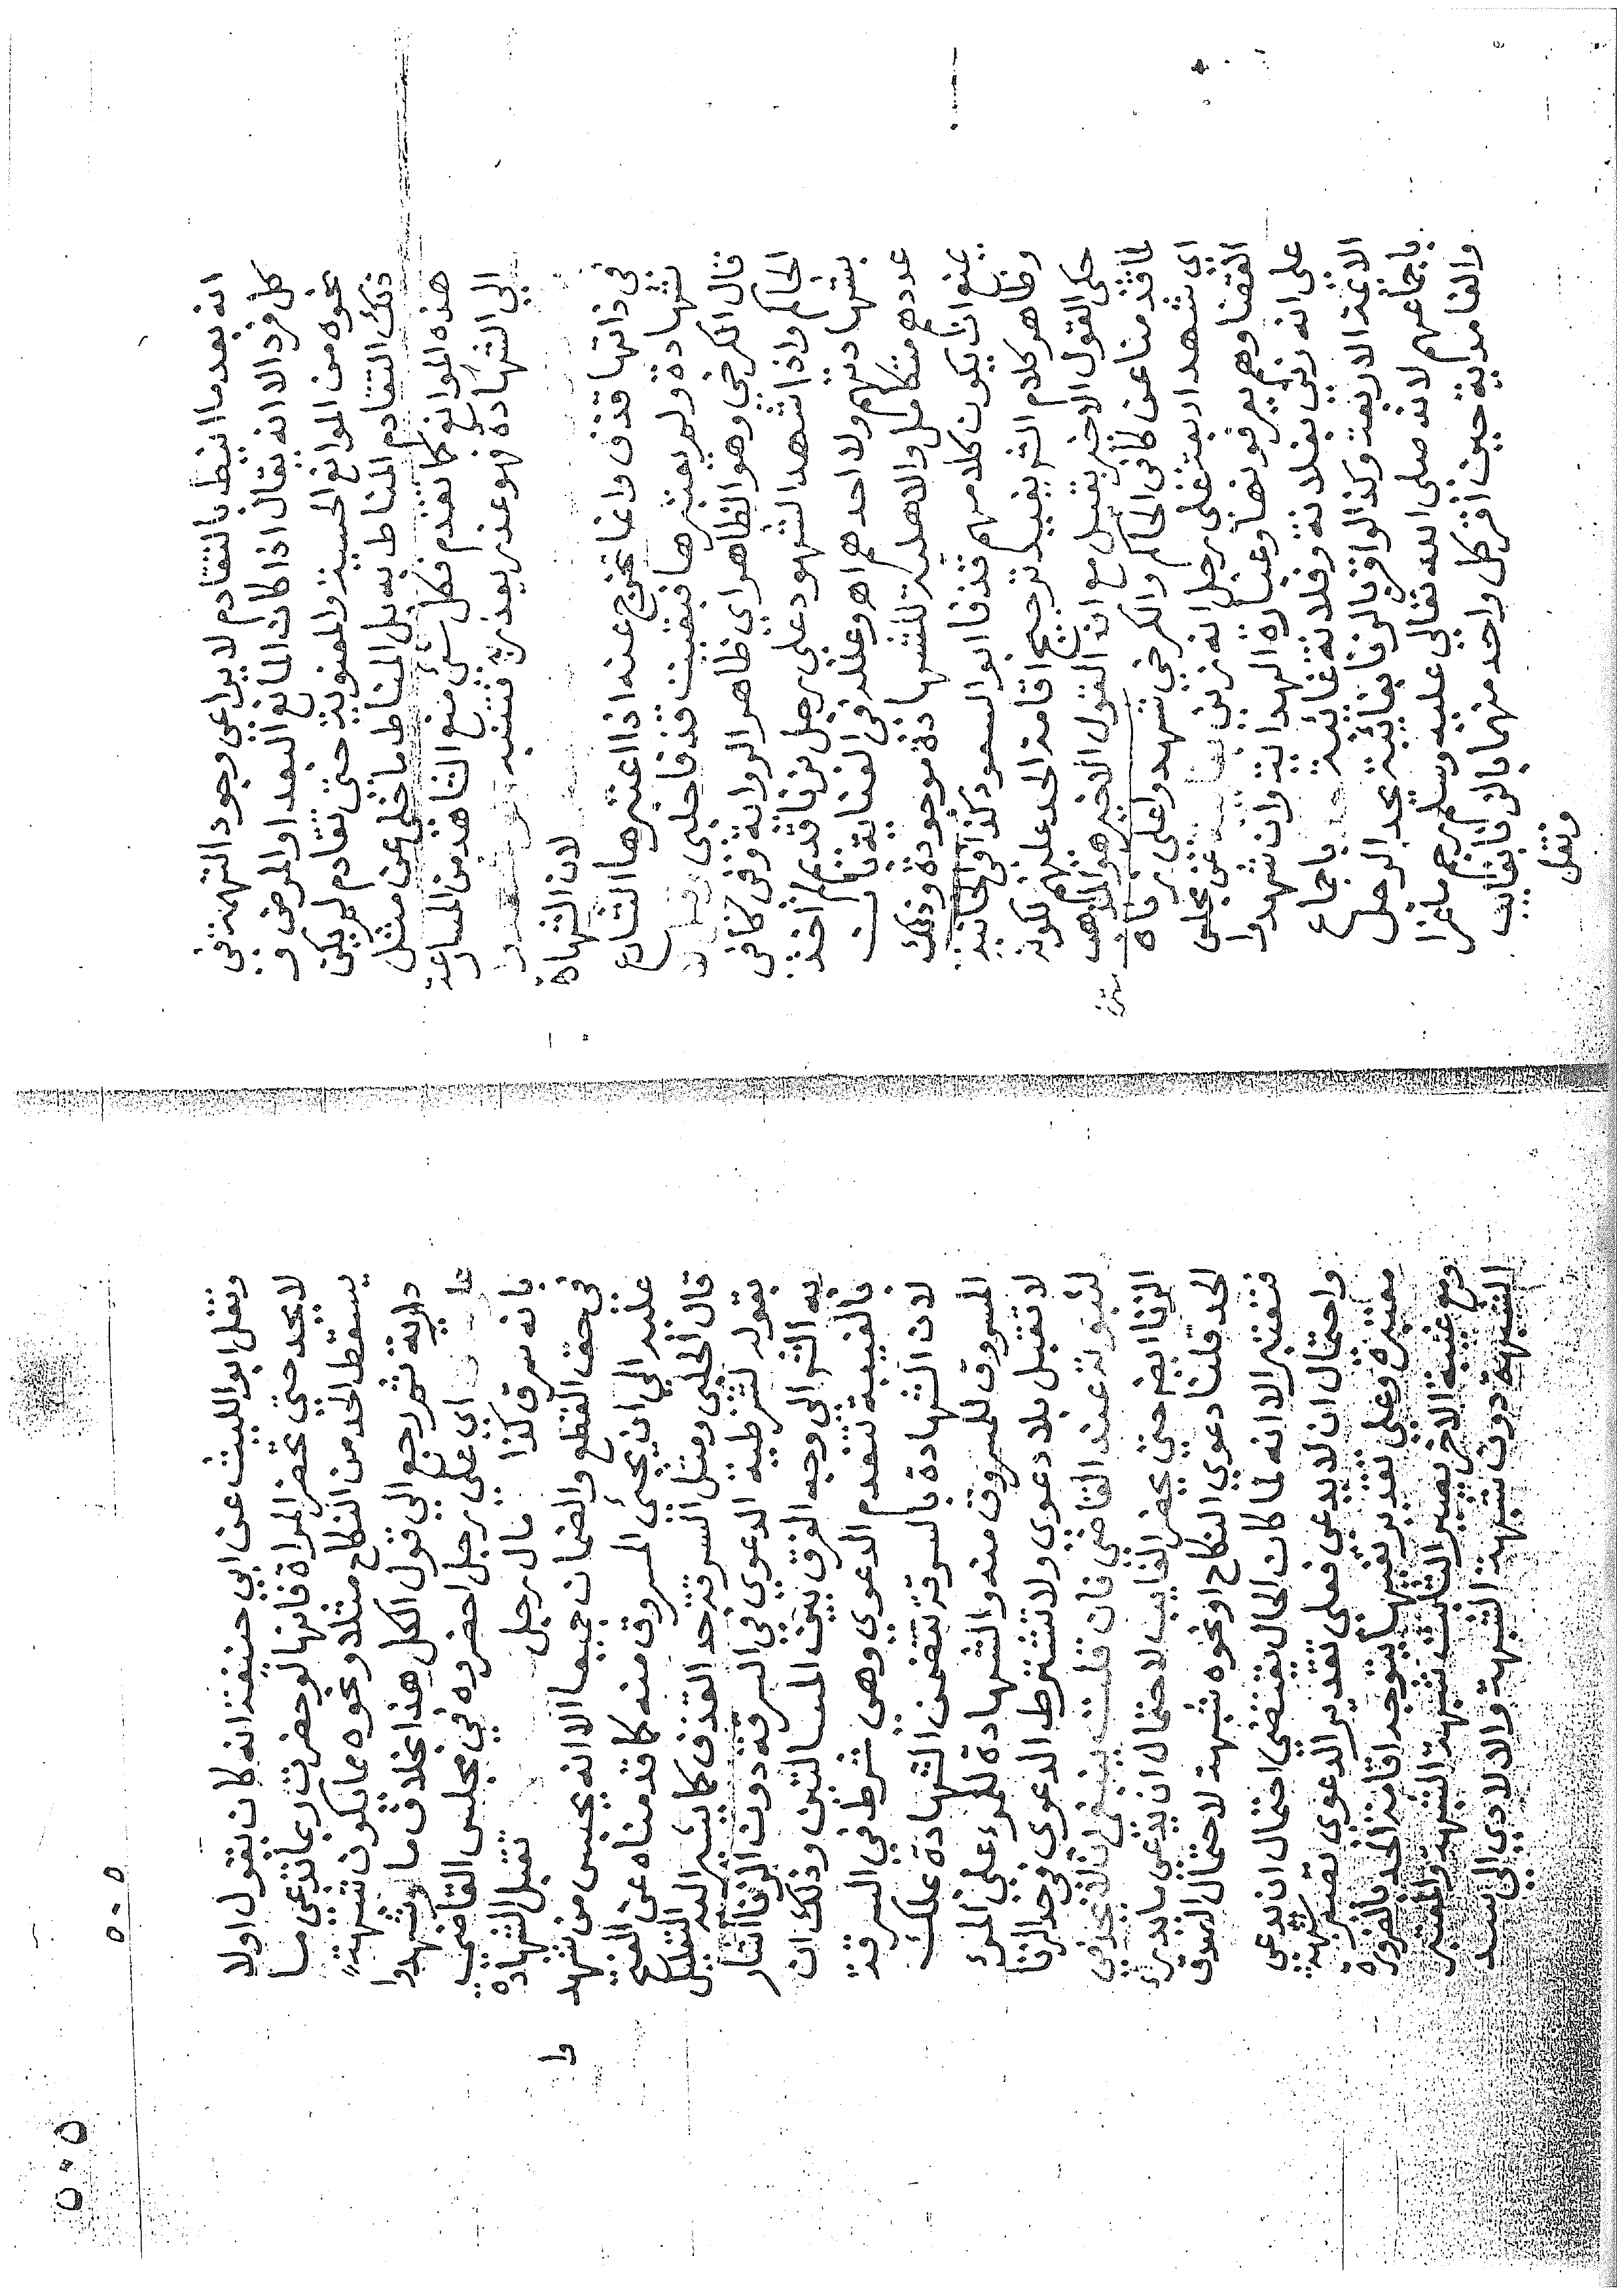 انه بعد ما انيط بالتقادم لا يراعي وجود التهمة في
كل فرد الا انه يقال اذا كان المانع البعد او المرض و
نحوه من الموانع الحسية والمعنوية حتى تقادم لم يكن
ذلك التقادم المناط به بل المناط ما خلي عن مثل
هذه الموانع كما تقدم فكل شئ منع الشاهد من المسارعة
الي الشهادة فهو عذر يعذر به فتنبه
لان الشهادة
في ذاتها قذف وانما تخرج عنه اذا اعتبرها الشارع
شهادة ولم يعتبرها فبقيت قذفا حلبي
قال الكرخي وهو الظاهر اي ظاهر الرواية وفي كافي
الحاكم واذا شهد الشهود على رجل بزنا قديم لم اخذ
بشهادتهم ولا احدهم اهـ وعلله في العناية بان
عددهم متكامل والاهلية للشهادة موجودة وذلك
يمنع ان يكون كلامهم قذفا ابو السعود كذا في الخانية
وظاهر كلام الشر يفيد ترجيح اقامة الحد عليهم لكونه
حكى القول الاخر بقيل مع ان القول الاخر هو المذهب
لما قدمنا عن كافي الحاكم والكرخي شهدوا على زناه
اي شهد اربعة على رجل انه زنى بغائبة عن مجلس
القضا وهم يعرفونها وعبارة الهداية وان شهدوا
على انه زنى بفلانة وفلانة غائبة باجماع
الائمة الاربعة وكذا لو اقر بالزنا بغائبة يحد الرجل
باجماعهم لانه صلى الله تعالي عليه وسلم رجم ماعزا
والغامدية حين اقر كل واحد منهما بالزنا بغائب
ونقل
ونقل ابو الليث عن ابي حنيفة انه كان يقول اولا
لا يحد حتى تحضر المراة فانها لو حضرت ربما تدعي ما
يسقط الحد من النكاح مثلا ونحوه مما يكون شبهة
دارية ثم رجع الي قول الكل هذا بخلاف ما لو شهدوا
على اي على رجل احضروه في مجلس القاضي
بانه سرق كذا مال رجل تقبل الشهادة
في حق القطع والضمان جميعا الا انه يحبس من شهد
عليه الي ان يجئ المسروق منه كما قدمناه عن الفتح
قال الحلبي ومثل السرقة حد القذف كما يشير اليه التعليل
بقوله لشرطية الدعوي في السرقة دون الزنا اشار
به الشر الى وجه الفرق بين المسالتين وذلك ان
بالغيبة تنعدم الدعوي وهي شرط في السرقة
لان الشهادة بالسرقة تتضمن الشهادة بملك
المسروق للمسروق منه والشهادة للمرء على المرء
لا تقبل بلا دعوى ولا تشترط الدعوي في حد الزنا
لثبوته عند القاضي فان قلت ينبغي ان لا يحد في
الزنا ايضا حتى يحضر الغايب لاحتمال ان يدعي ما يدرء
الحد قلنا دعوي النكاح او نحوه شبهة لاحتمال الصدق
فتعتبر الا انه لما كان الحال يقتضي احتمال ان يدعي
واحتمال ان لا يدعي فعلى تقدير الدعوي تصير شبهة
معتبرة وعلى تقدير نفيها يتوجه اقامة الحد بالضرورة
ومع غيبة الاخر يصير الثابت شبهة الشبهة والمعتبر
الشبهة دون شبهة الشبهة والا لادى الي سد